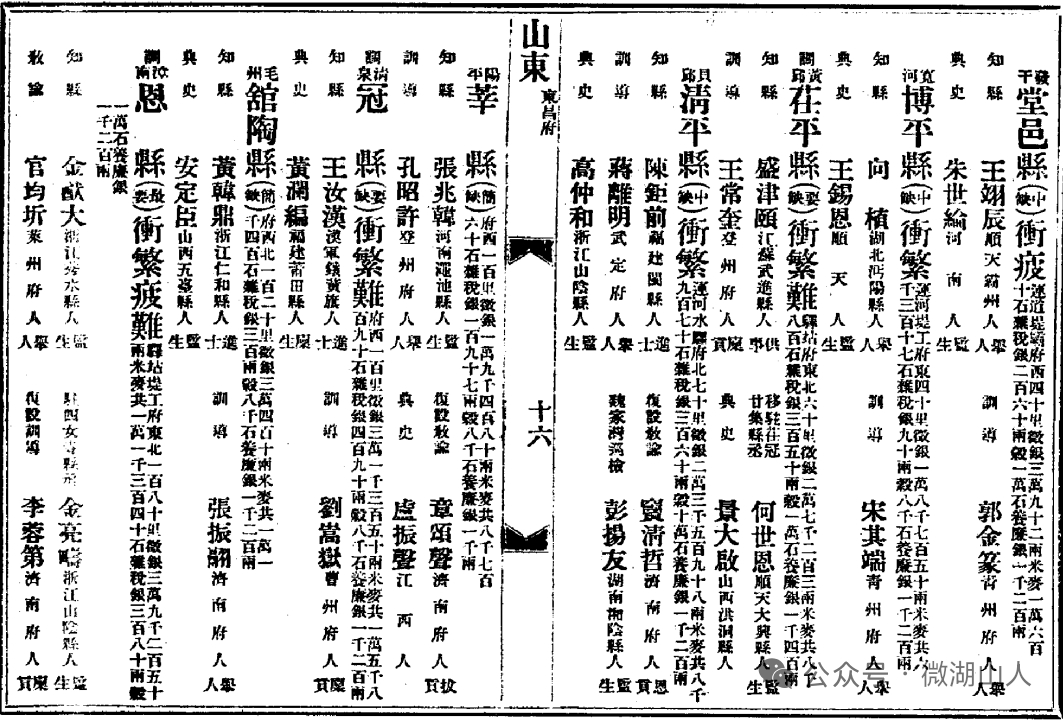 發干 堂邑縣(中缺)衝疲 運道堤霸府西四十里徵銀三萬九千二兩米麥共一萬六百十石雜稅銀二百六十兩穀一萬石養廉銀一千二百兩
知縣 王翊辰 順天霸州人 舉人 訓導 郭金篆 青州府人 舉人
典史 朱世綸 河南人 監生
寬河 博平縣(中缺)衝繁 運河堤工府東四十里徵銀一萬八千七百五十兩米麥共六千三百十七石雜稅銀九十兩穀八千石養廉銀一千二百兩
知縣 向植 湖北沔陽縣人 舉人 訓導 宋其端 青州府人 舉人
典史 王錫恩 順天人 監生
黃邱 茌平縣(要缺)衝繁難 驛站府東北六十里徵銀二萬七千二百三兩米麥共八千八百石雜稅銀三百五十兩穀一萬石養廉銀一千四百兩
知縣 盛津頤 江蘇武進縣人 供事 移駐茌冠廿集縣丞 何世恩 順天大興縣人 監生
訓導 王常奎 登州府人 廩貢 典史 景大啟 山西洪洞縣人
貝邱 清平縣(中缺)衝繁 運河水驛府北七十里徵銀二萬三千五百九十八兩米麥共八千九百七十石雜稅銀三百六十兩穀十萬石養廉銀一千二百兩
知縣 陳鉅前 福建閩縣人 進士 復設教諭 竇清哲 濟南府人 恩貢
訓導 蔣離明 武定府人 舉人 魏家灣巡檢 彭揚友 湖南湘陰縣人 監生
典史 高仲和 浙江山陰縣人 監生
山東 東昌府 十六
陽平 莘縣(簡缺) 府西一百里徵銀一萬九千四百八十兩米麥共八千七百六十石雜稅銀一百九十七兩穀八千石養廉銀一千兩
知縣 張兆韓 河南澠池縣人 監生 復設教諭 章頌聲 濟南府人 拔貢
訓導 孔昭許 登州府人 舉人 典史 盧振聲 江西人
清泉 冠縣(要缺)衝繁難 府西一百里徵銀三萬一千三百五十兩米麥共一萬五千八百九十石雜稅銀四百九十兩穀八千石養廉銀一千二百兩
知縣 王汝漢 漢軍鑲黃旗人 進士 訓導 劉嵩嶽 曹州府人 廩貢
典史 黃瀾編 福建莆田縣人 廩生
毛州 舘陶縣(簡缺) 府西北一百二十里徵銀三萬四百十兩米麥共一萬一千四百石雜稅銀三百兩穀八千石養廉銀一千二百兩
知縣 黃韓鼎 浙江仁和縣人 進士 訓導 張振翮 濟南府人 舉人
典史 安定臣 山西五臺縣人 監生
漳南 恩縣(最要)衝繁疲難 驛站堤工府東北一百八十里徵銀三萬九千二百五十兩米麥共一萬一千三百四十石雜稅銀三百八十兩穀一萬石養廉銀一千二百兩
知縣 金猷大 浙江秀水縣人 監生 駐四女寺縣丞 金亮 浙江山陰縣人 監生
教諭 官均圻 萊州府人 舉人 復設訓導 李蓉第 濟南府人 廩貢
公众号·微湖山人